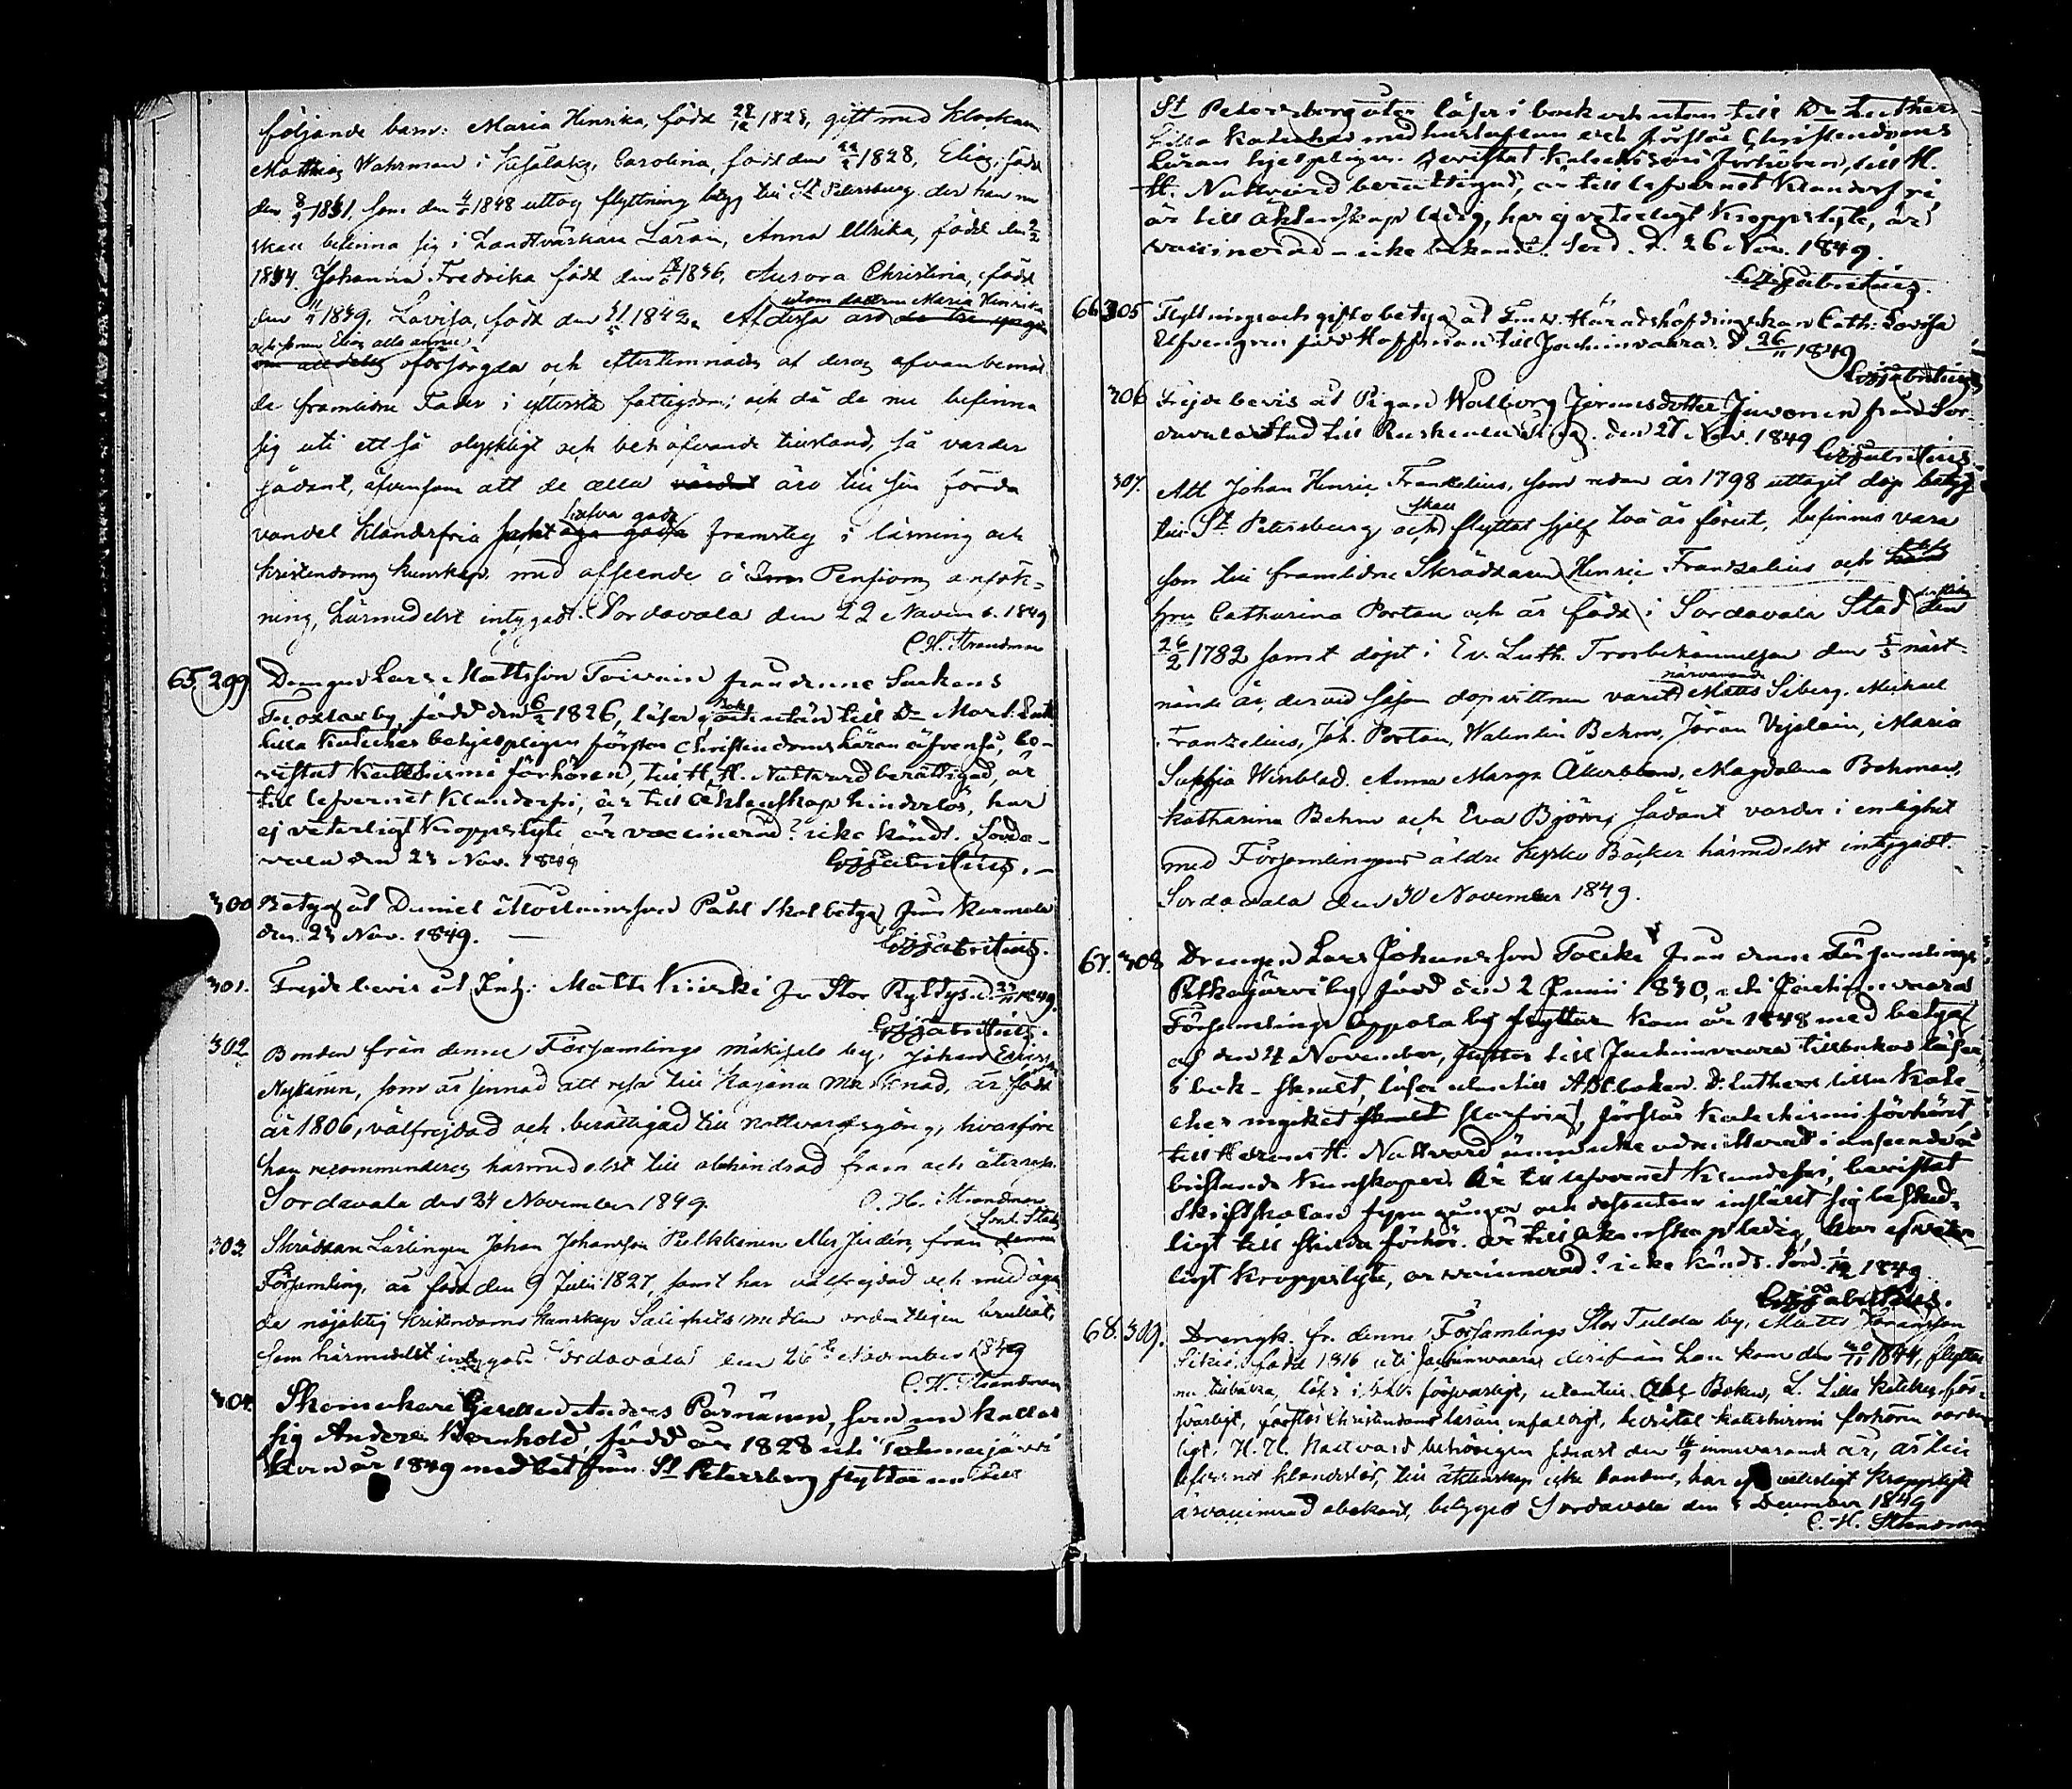 följande barn: Maria Henrika, född 28/12 1823, gift med Klockaren
Mathias Wahrman i Kesälaks, Carolina, född den 22/2 1828, Elias, född
den 8/9 1831, som den 4/5 1848 uttog flyttning betyg till St Petersburg der han nu
skall befinna sig i Landtvärskan Läran, Anna Ulrika, född den 2/2
1834. Johanna Fredrika född den 18/6 1836, Aurora Christina, född
den 11/4 1839, Lovisa, född den 21/5 1842. Af dessa äro utom dottren Maria Henrika
och sonen Elias alla ännu
oförsörgda och efterlemnades af deras ofvanbemäl-
de framlidne Fader i yttersta fattigdom; och då de nu befinna
sig uti ett så olyckligt och behöfvande tillstånd, så varder
sådant, äfvensom att de alla äro till sin förda
vandel klanderfria samt hafva goda framsteg i läsning och
Kristendoms kunskap med afseende å Pensions ansök-
ning, härmedelst intygadt. Sordavala den 22 Novemb. 1849
C. H. Strandman
65. 299 Drengen Lars Mattsson Toivain från denne Sockens
Tuoxlax by, född den 6/2 1826, läser i bok och utan till Dr Mart. Luth.
Lilla Kateches behjelpligen förstår Christendoms Läran äfvenså, be-
vistat Katechismi förhören, till H. H. Nattvard berättigad, är
till lefvernet klanderfri, är till äktenskap hinderlös, har
ej veterligt Kroppslyte är vaccinerad? icke kändt. Sorda-
vala den 23 Nov. 1849
300 Betyg åt Daniel Påhl Skolbetyg från
den 23 Nov. 1849.
301. Frejdebevis åt Inh: Matts Kiiski fr Stor Rytty 1849.
302 Bonden från denne Församlings Mäkisalo by, Johan Ericsson
Nykänen, som är sinnad att resa till Kajana Marknad, är född
år 1806, välfrejdad och berättigad till nattvardsgång, hvarföre
han recommenderas härmedelst till obehindrad fram och återresa.
Sordavala den 24 November 1849. C. H. Strandman
303 Skräddare Lärlingen Johan Johansson Pulkkinen eller Judén, från Sord. Stads
Församling, är född den 9 Julii 1827, samt har välfrejdad och med äga-
de nöjaktig Kristendoms Kunskap Salighetsmedlen ordentligen brukat,
som härmedelst intygas. Sordavala den 26te November 1849
C. H. Strandman
304. Skomakare Gesellen Anders Pärnänen, som nu kallar
sig Anders Bernhold, född år 1828 uti Tohmajärvi
kom år 1849 med bet. från St Petersberg flyttar nu till
St Petersberg åter läser i bok och utan till Dr Luthers
Lilla Kateches med hustaflan och förstår Christendoms
Läran hjelpligen. bevistat Katechismi förhören, till H.
H. Nattvard berättigad, är till lefvernet klanderfri
är till äktenskap ledig, har ej veterligt Kroppslyte, är
vaccinerad – icke bekant. Sord. d. 26 Nov. 1849.
66 305 Flyttnings och gifto betyg åt Enk. Häradshöfdingskan Cath: Lovisa
Elfvengren född Hoffman till Jachimvaara d. 26/11 1849
306 Frejdebevis åt Pigan Walborg Jöransdotter Juvonen från Sor-
davala Stad till Ruskeala den 27 Nov. 1849
307. Att Johan Henric Frantzelius, som redan år 1798 uttagit dop betyg
till St Petersburg och skall flyttat sjelf två år förut, befinnes vara
son till framlidne Skräddaren Henric Frantzelius och
hru Catharina Portan och är född i Sordavala Stad den
26/2 1782 samt döpt i Ev. Luth. Trosbekännelsen den 5/3 näst-
nända år, dervid såsom dopvittnen varit närvarande Matts Siberg, Michael
Frantzelius, Joh. Portan, Walentin Behm, Jöran Vepsäläin, Maria
Sophia Winblad, Anna Margr. Åkerblom, Magdalena Bohman,
Katharina Behm och Eva Björn; sådant varder i enlighet
med Församlingens äldre Kyrko Böcker härmedelst intygadt.
Sordavala den 30 November 1849.
67. 308 Drengen Lars Johansson Tocki från denne Församlings
Pitkäjärvi by, född den 2 Junii 1830, uti Jachimvaara
Församlings Oppola by kom år 1848 med betyg
af den 4 November, flyttar till Jachimvaara tillbaka läser
i bok – skralt, läser utantill ABC boken. D. Luthers lilla Kate-
ches mycket förstår Katechismi förhöret,
till Herrans H. Nattvard ännu icke admitterad i anseende å
bristande Kunskaper. Är till lefvernet klanderfri, bevistat
Skriftskolan fyra gånger och dessutom inställt sig beskede-
ligt till förhör. är till äktenskap ledig, har ej veter-
ligt Kroppslyte, är vaccinerad? icke kändt. Sord. 1/12 1849
68. 309. Drengk. fr. denne Församlings Stor Tulola by, Matts Göransson
född 1816 uti Jachimvaara derifrån han kom den 20/11 1844, flyttar
nu tillbaka, läser i bok försvarligt, utantill Abc Boken, L. Lilla Kateches för-
svarligt, förstår Christendoms läran enfaldigt, bevistat Katechismi förhören ordent-
ligt, H. H. Nattvard behörigen senast den 16/9 innevarande år, är till
lefvernet klanderlös, till äktenskap icke bunden, har ej veterligt Kroppslyte
är vaccinerad obekant, betygas Sordavala den 3 December 1849
C. H. Strandman